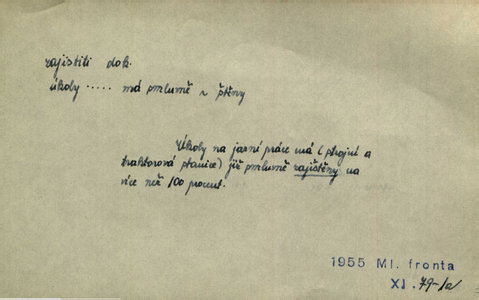 zajistiti dok.
úkoly ..... má smluvně z štěny
Úkoly na jarní práce má (strojní a
traktorová stanice) již smluvně zajištěny na
více než 100 procent.
1955 Ml. fronta
XI. 79-1a